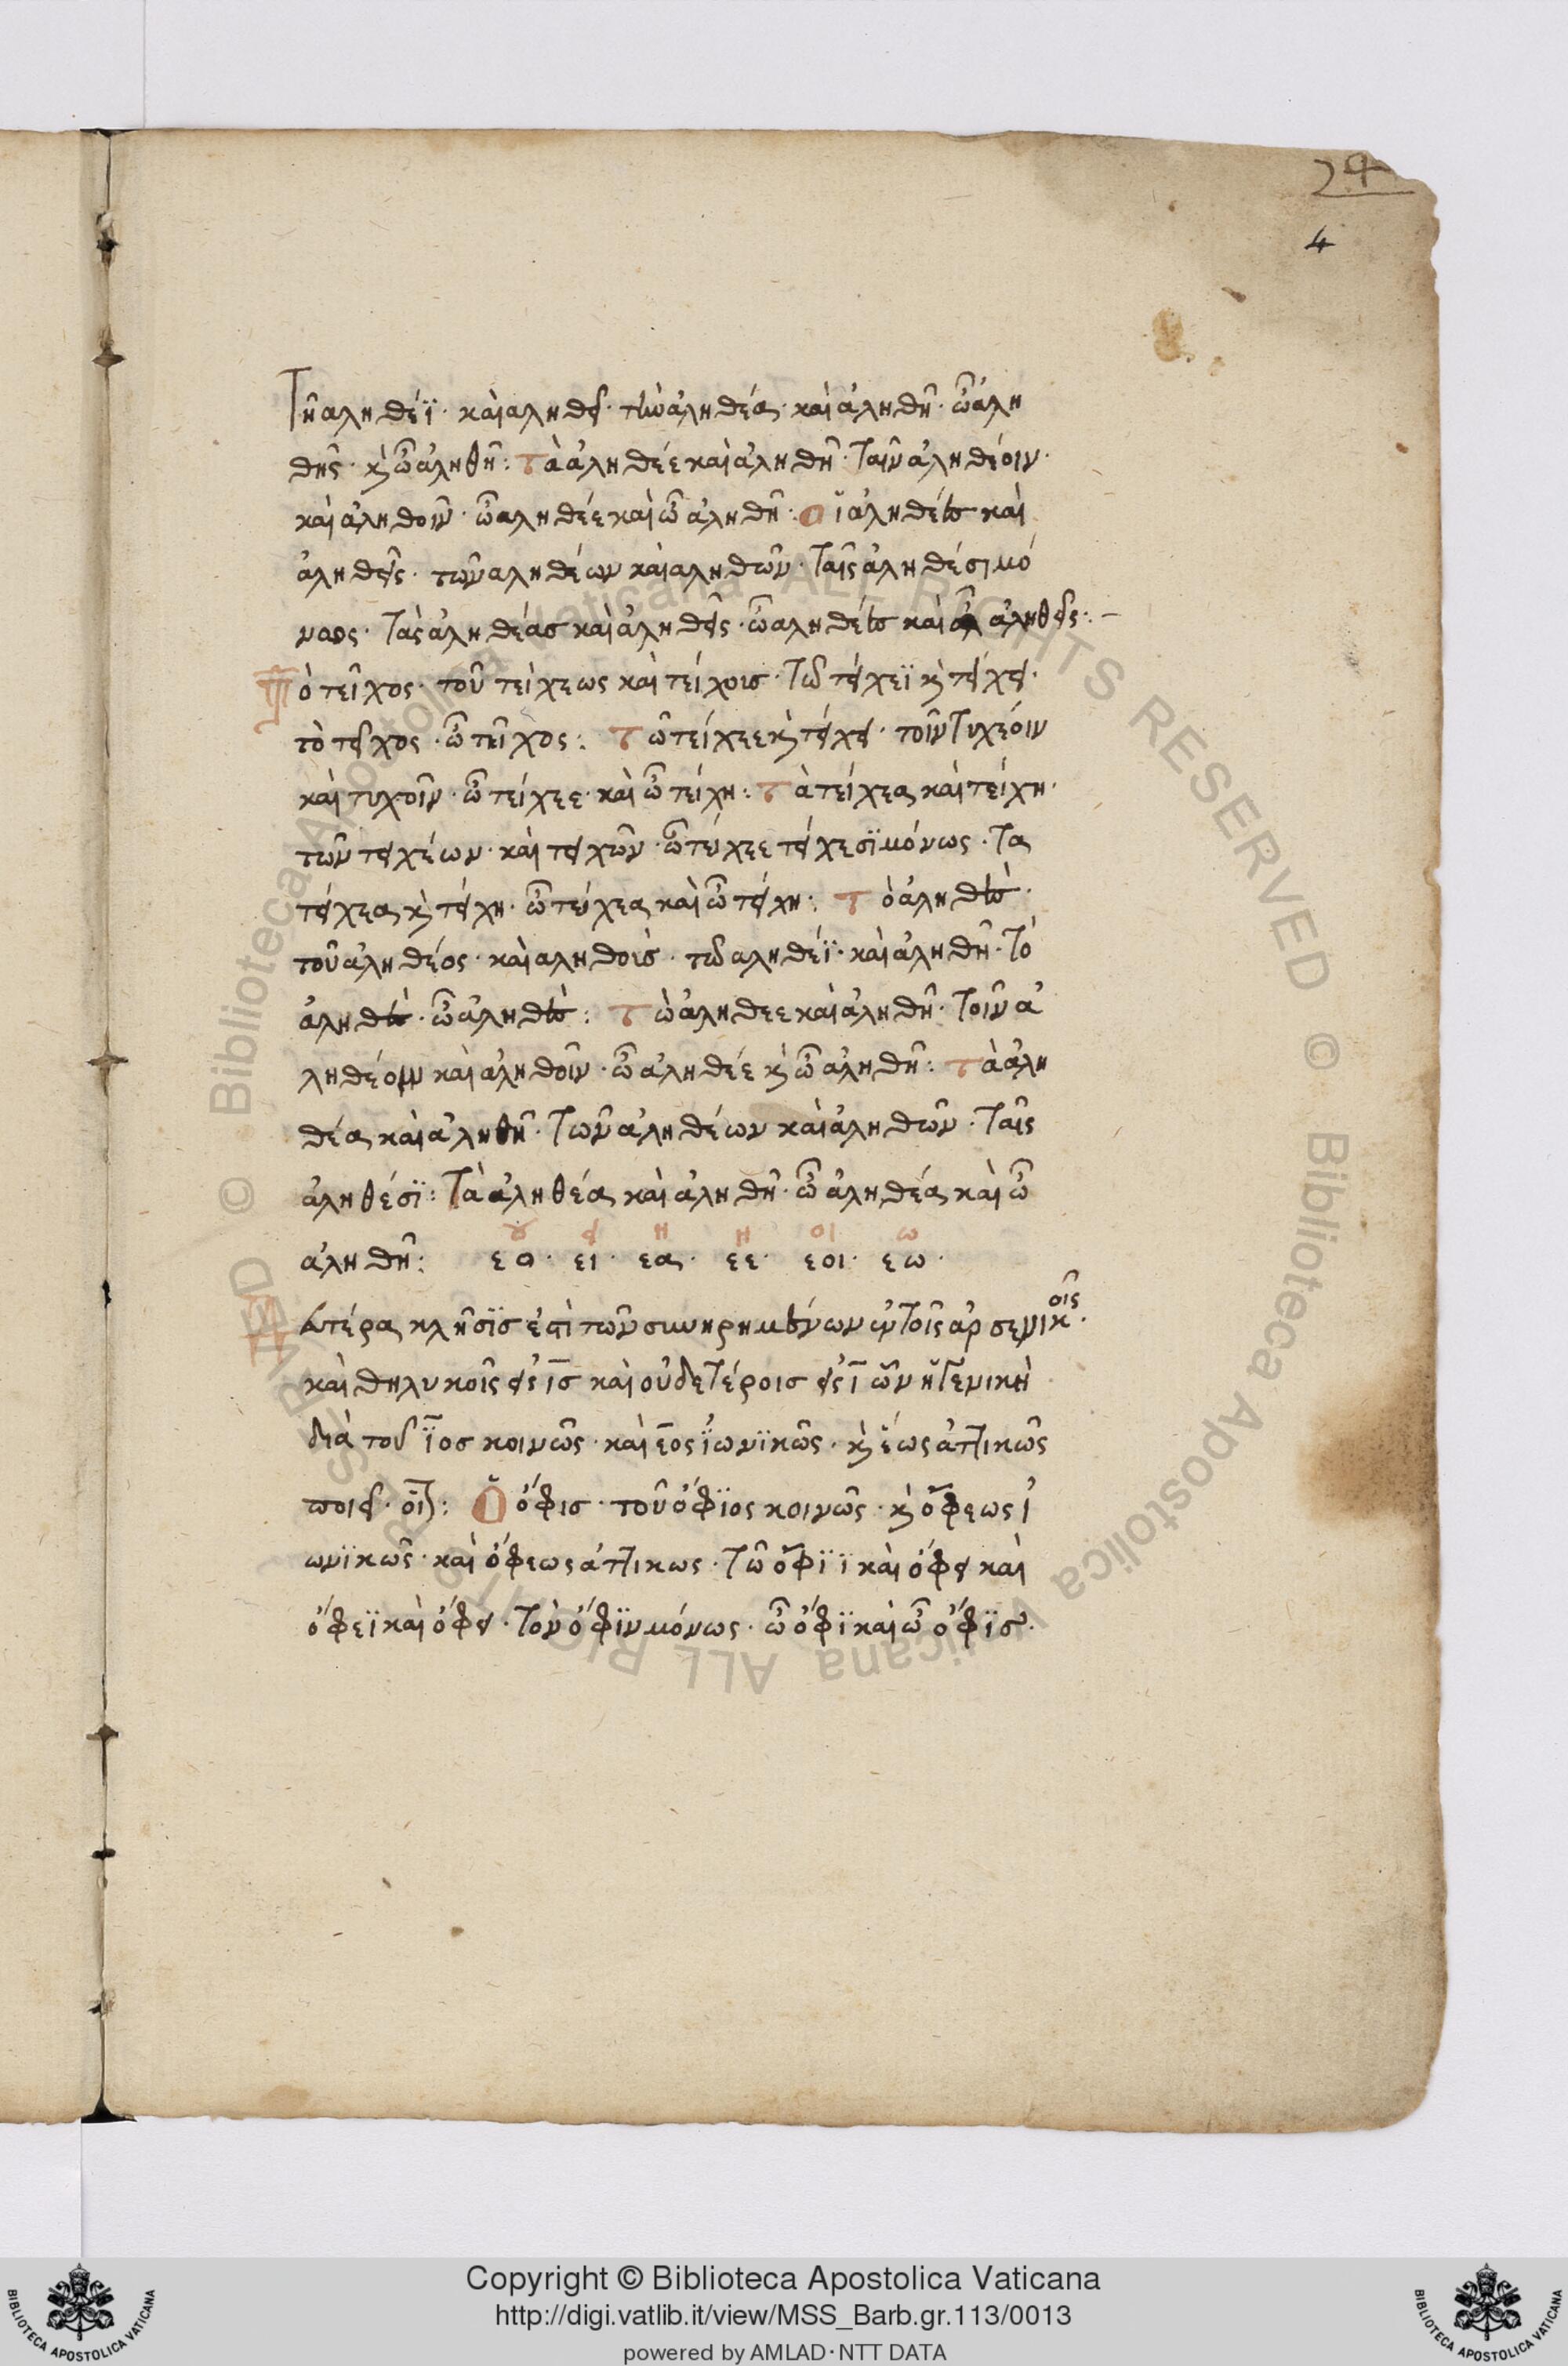 24
4
Τῆ αληθέϊ· καὶ αληθεῖ· τὴν ἀληθέα· καὶ ἀληθῆ· ὦ ἀλη
θὴς· κὶ ὦ ἀληθῆ: τὰ ἀληθέε καὶ ἀληθῆ· ταῖν ἀληθέοιν·
καὶ ἀληθοῖν· ὦ αληθέε καὶ ὦ ἀληθῆ: αἱ ἀληθέες καὶ
ἀληθεῖς· τῶν αληθέων καὶ αληθῶν· ταῖς ἀληθέσι μό
νως· τὰς ἀληθέας καὶ ἀληθεῖς· ὦ αληθέες καὶ ὦ ἀληθεῖς:–
τὸ τεῖχος· τοῦ τείχεως καὶ τείχοις· τῶ τείχεϊ κὶ τείχει·
τὸ τεῖχος· ὦ τεῖχος: τῶ τείχεε κὶ τείχει· τοῖν τυχέοιν
καὶ τυχοῖν· ὦ τείχεε· καὶ ὦ τείχη: τὰ τείχεα καὶ τείχη·
τῶν τειχέων· καὶ τειχῶν· ὦ τείχεε τείχεσϊ μόνως· τα
τείχεα κὶ τείχη· ὦ τείχεα καὶ ὦ τείχη: τὸ ἀληθὲς·
τοῦ ἀληθέος· καὶ αληθοῖς· τῶ αληθέϊ· καὶ ἀληθῆ· τὸ
ἀληθὲς· ὦ ἀληθὲς: τὼ ἀληθεε καὶ ἀληθῆ· τοῖν ἀ
ληθέοιν καὶ ἀληθοῖν· ὦ ἀληθέε κὶ ὦ ἀληθῆ: τὰ ἀλη
θέα καὶ ἀληθῆ· τῶν ἀληθέων καὶ ἀληθῶν· ταῖς
ἀληθέσϊ: τὰ ἀληθέα καὶ ἀληθῆ· ὦ ἀληθέα καὶ ὦ
ου ει η η οι ω
ἀληθῆ: εο· ει· εα· εε· εοι· εω·
δευτέρα κλῆσϊς ἐπὶ τῶν συνηρημένων ἐν τοῖς ἀρσενικοῖς·
καὶ θηλυκοῖς εἰς ϊς καὶ οὐδετέροις εἰς ϊ ὧν ἡ γενικὴ
διὰ τοῦ ϊος κοινῶς· καὶ εος ἰωνϊκῶς· κὶ εως ἀττικῶς
ποιεῖ· οἷον: ὁ ὄφις· τοῦ ὄφϊος κοινῶς· κὶ ὄφεως ἰ
ωνϊκῶς· καὶ ὄφεως ἀττικως· τῶ ὄφϊϊ καὶ ὄφει καὶ
ὄφεϊ καὶ ὄφει· τὸν ὄφϊν μόνως· ὦ ὄφϊ καὶ ὦ ὄφϊς·
Copyright © Biblioteca Apostolica Vaticana
http://digi.vatlib.it/view/MSS_Barb.gr.113/0013
powered by AMLAD·NTT DATA